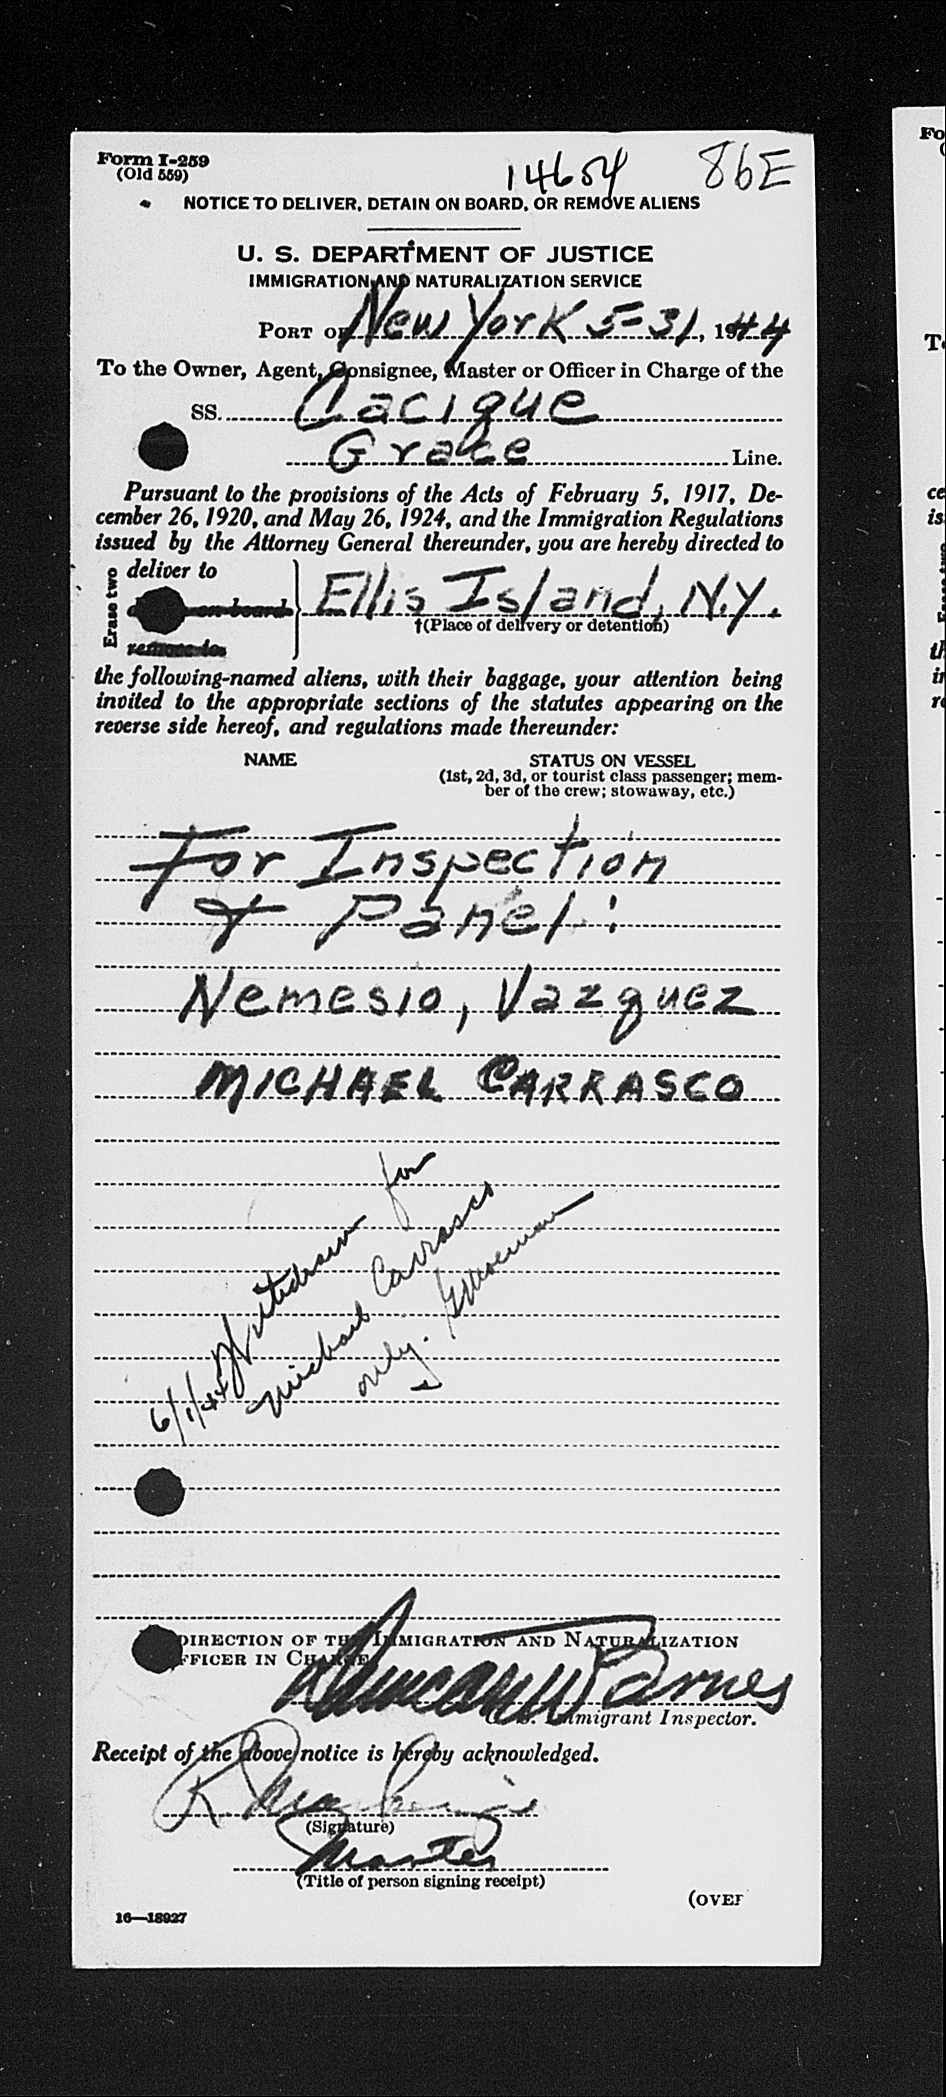 Form I-259
(Old 559)
14654 86E
NOTICE TO DELIVER, DETAIN ON BOARD, OR REMOVE ALIENS
U. S. DEPARTMENT OF JUSTICE
IMMIGRATION AND NATURALIZATION SERVICE
PORT OF New York 5-31, 1944
To the Owner, Agent, Consignee, Master or Officer in Charge of the
SS. Cacique
Grace Line.
Pursuant to the provisions of the Acts of February 5, 1917, De-
cember 26, 1920, and May 26, 1924, and the Immigration Regulations
issued by the Attorney General thereunder, you are hereby directed to
Erase two
deliver to
on board
remove to
Ellis Island, N.Y.
†(Place of delivery or detention)
the following-named aliens, with their baggage, your attention being
invited to the appropriate sections of the statutes appearing on the
reverse side hereof, and regulations made thereunder:
NAME STATUS ON VESSEL
(1st, 2d, 3d, or tourist class passenger; mem-
ber of the crew; stowaway, etc.)
For Inspection
& Panel:
Nemesio, Vazquez
MICHAEL CARRASCO
6/1/44 Witdrawn for
Michael Carrasco
only.
DIRECTION OF THE IMMIGRATION AND NATURALIZATION
OFFICER IN CHARGE
Barnes
Immigrant Inspector.
Receipt of the above notice is hereby acknowledged.
R
(Signature)
Master
(Title of person signing receipt)
(OVER
16—18927
Fo
(
T